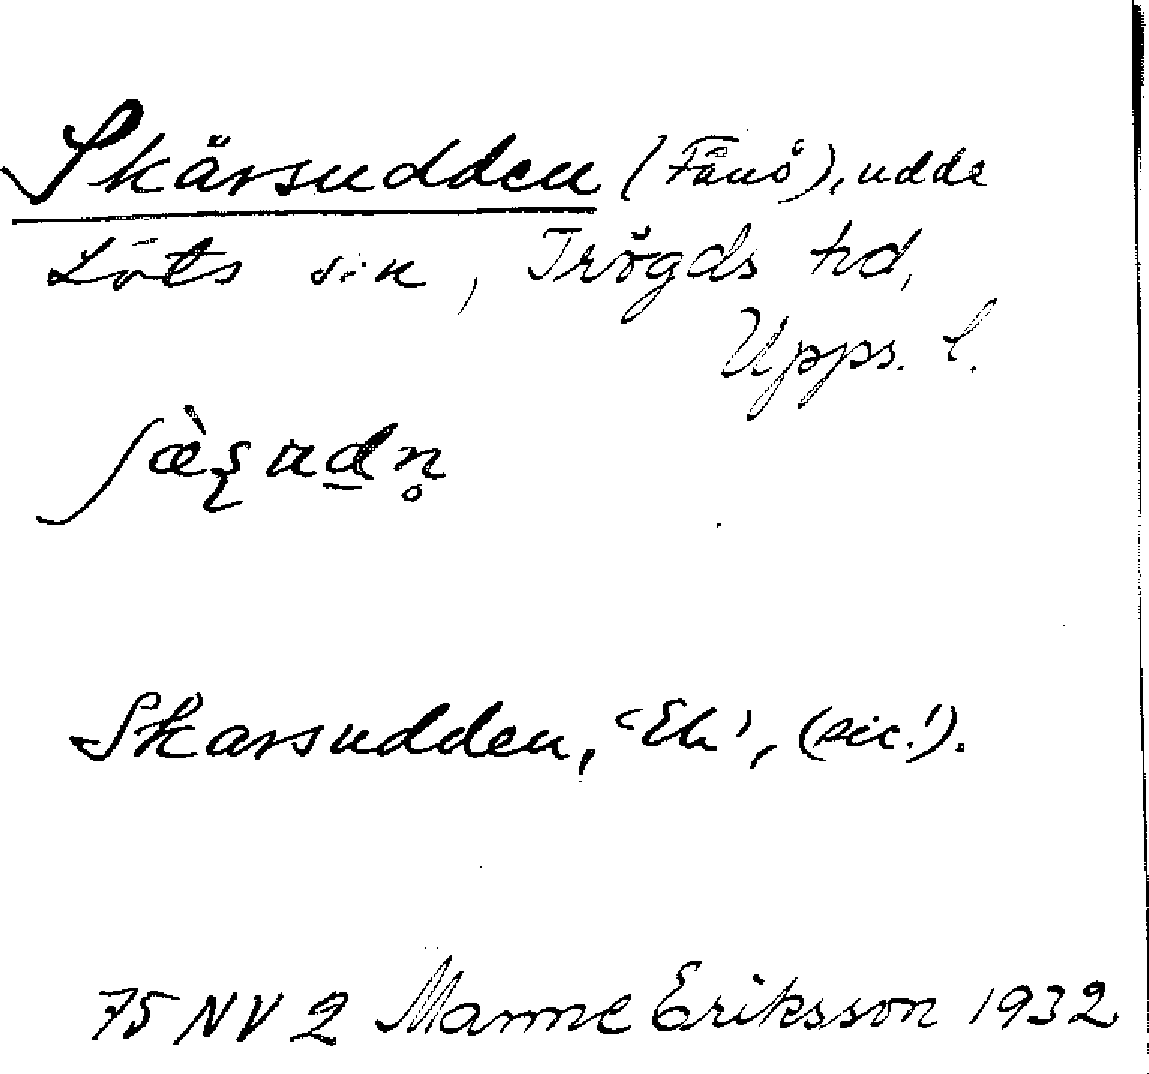 Skärsudden (Fånö), udde
Löts sn, Trögds hd,
Upps. l.
ʃæ̀ʂud̲n̥
Skarsudden, ‘Ek’, (sic!).
75 NV 2 Manne Eriksson 1932